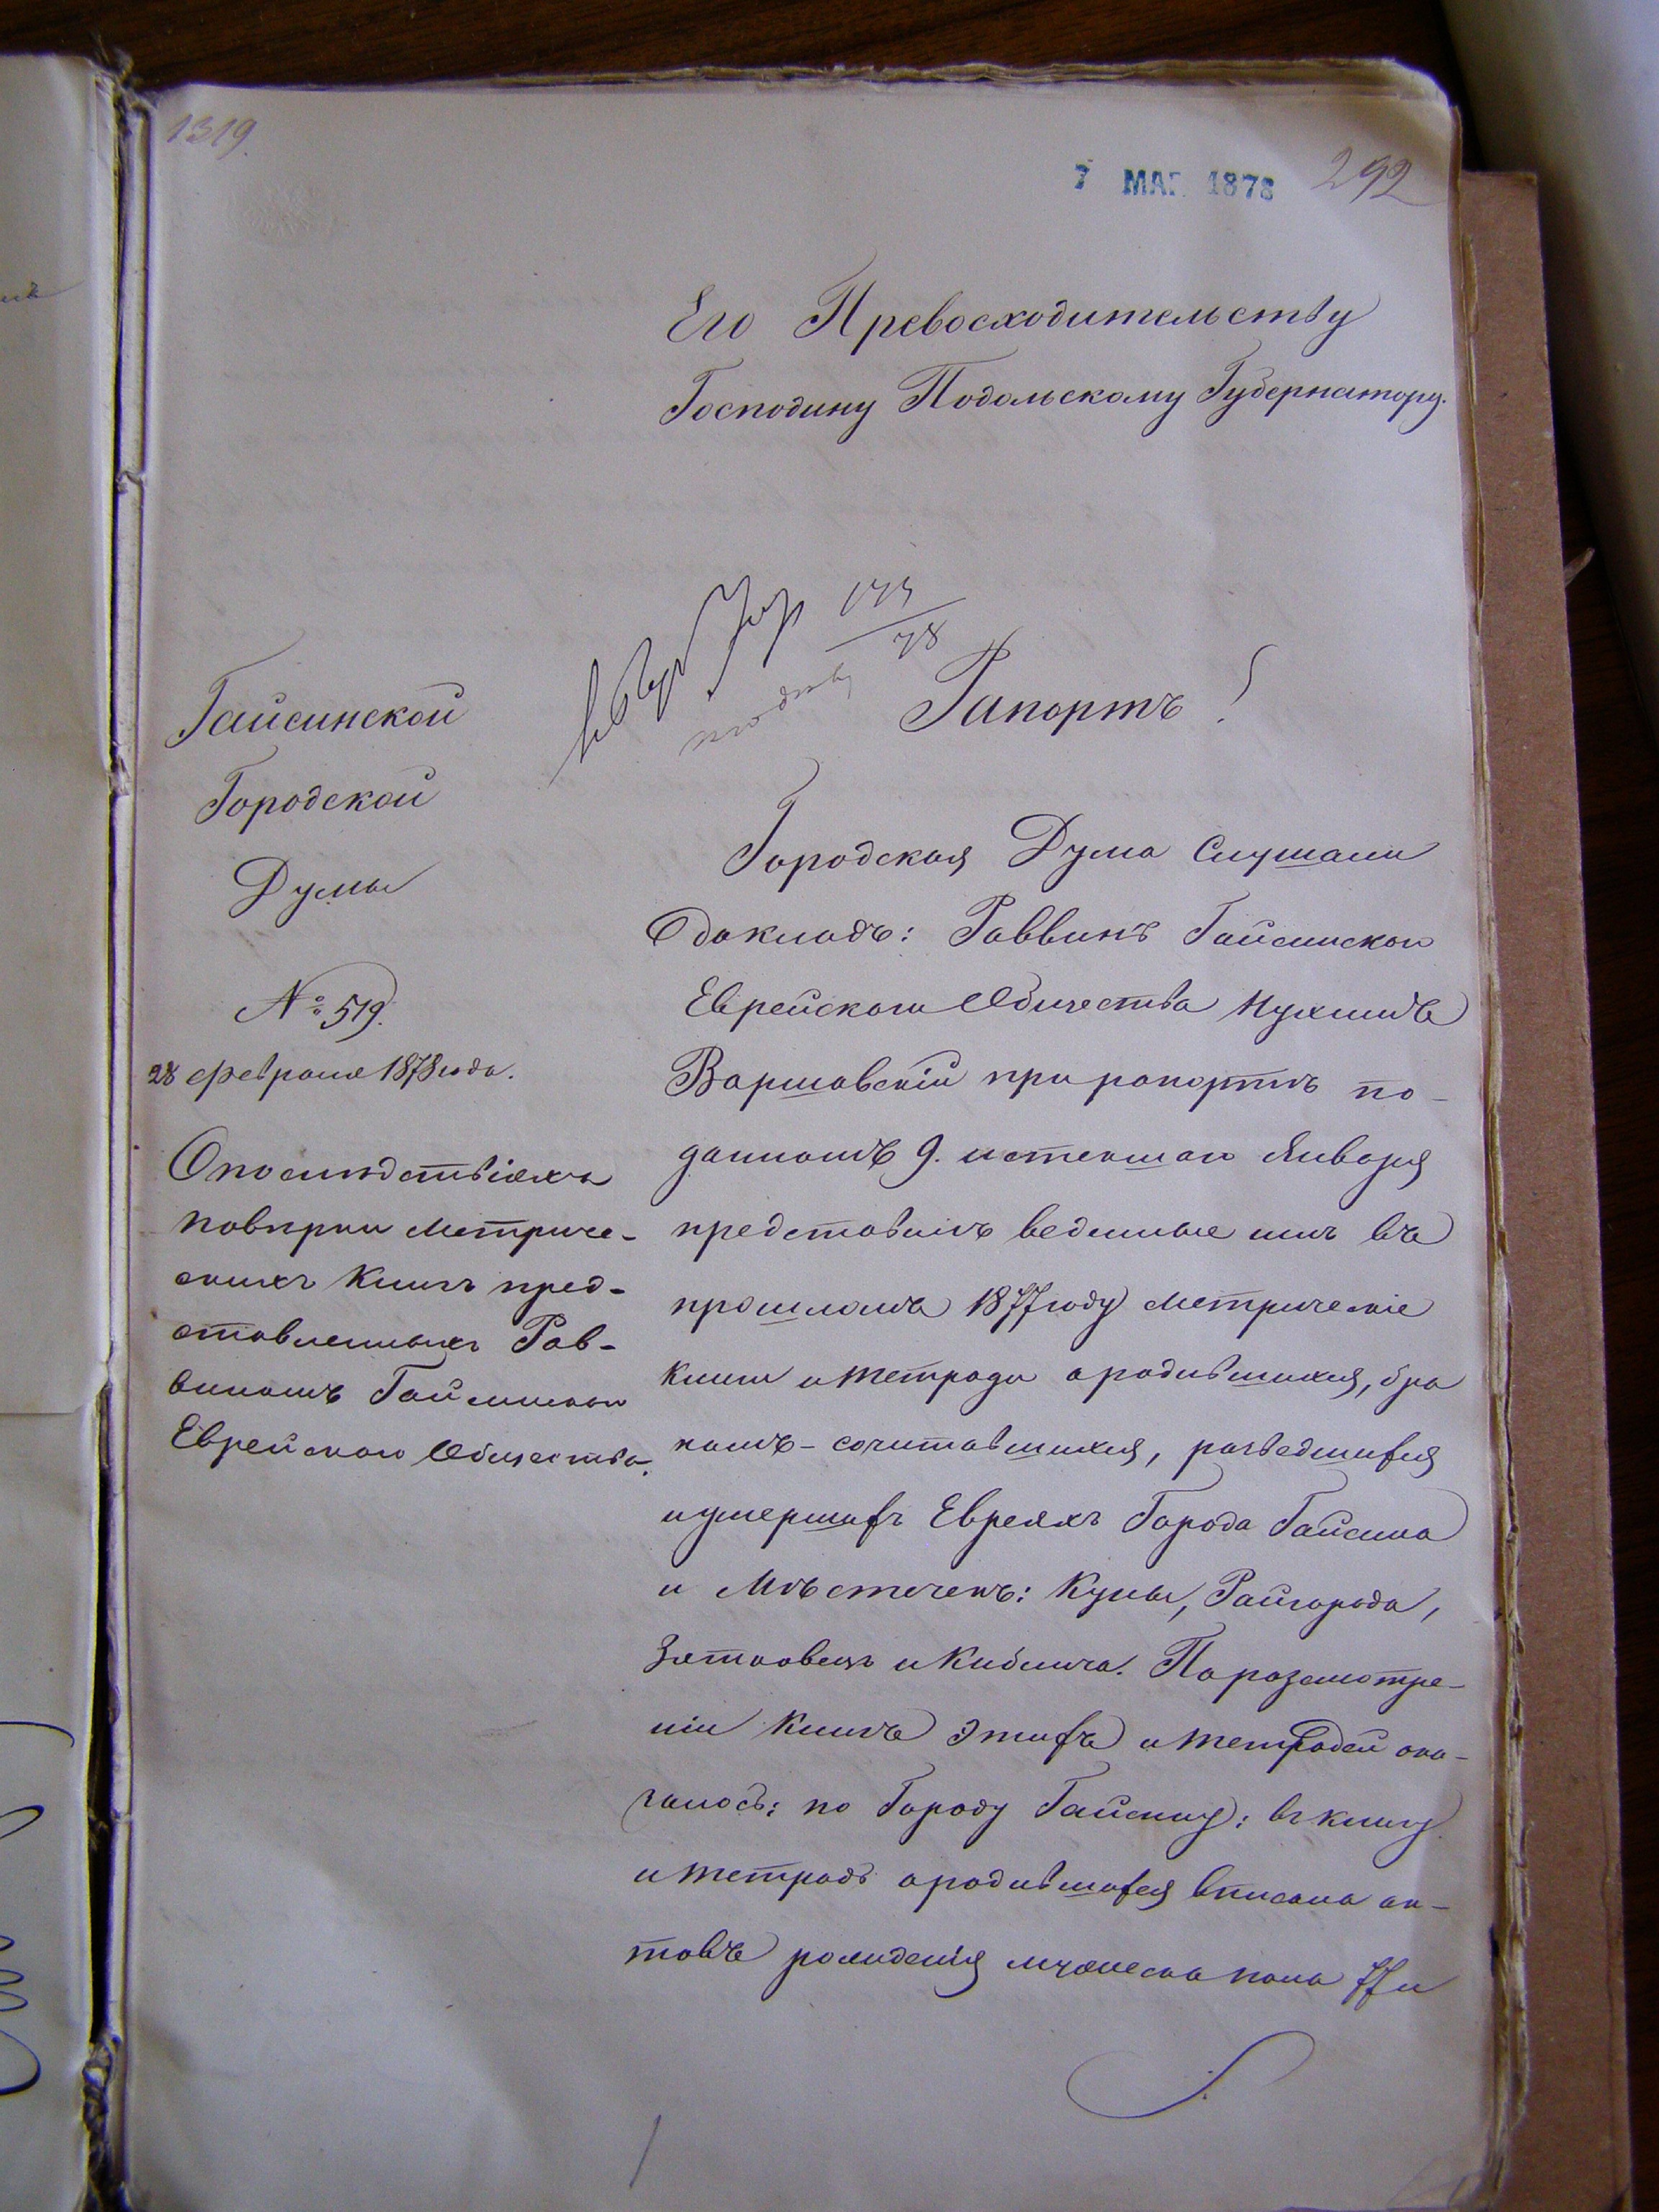 1319.
7 МАР. 1878
292
Его Превосходительству
Господину Подольскому Губернатору.
Гайсинской
Городской
Думы
№ 519.
28 февраля 1878 года.
О последствіяхъ
повѣрки метриче-
скихъ книгъ пред-
ставленныхъ Рав-
виномъ Гайсинскаго
Еврейскаго Общества.
Рапортъ!
Городская Дума Слушали
докладъ: Раввинъ Гайсинскаго
Еврейскаго Общества
Варшавскій при рапортѣ по-
данномъ 9. истекшаго Января
представилъ веденные имъ въ
прошломъ 1877 году метрическіе
книги и тетради о родившихся, бра
комъ-сочитавшихся, разведшихся
и умершихъ Евреяхъ Города Гайсина
и Мѣстечекъ: Куны, Райгорода,
Зятковецъ и Киблича. По разсмотре-
ніи книгъ этихъ и тетрадей ока-
залось: по Городу Гайсину: въ книгу
и тетрадь о родившихся вписано ак-
товъ рожденія мужеска пола 77 и